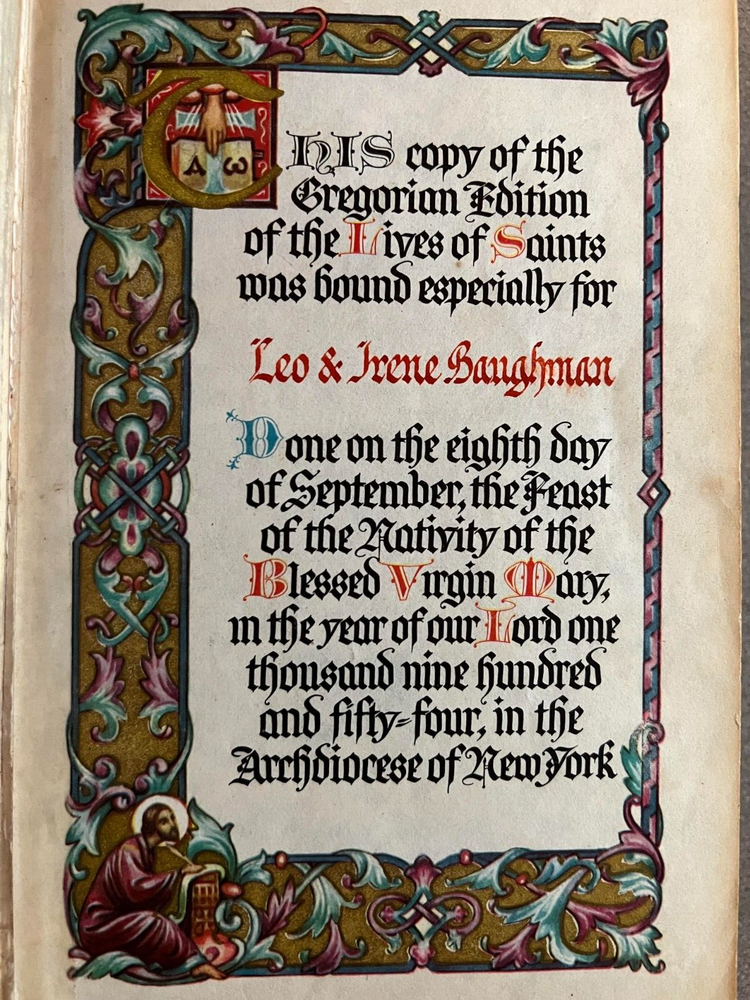 THIS copy of the
Gregorian Edition
of the Lives of Saints
was bound especially for
Leo & Irene Baughman
Done on the eighth day
of September, the Feast
of the Nativity of the
Blessed Virgin Mary,
in the year of our Lord one
thousand nine hundred
and fifty=four, in the
Archdiocese of New York
Α ω